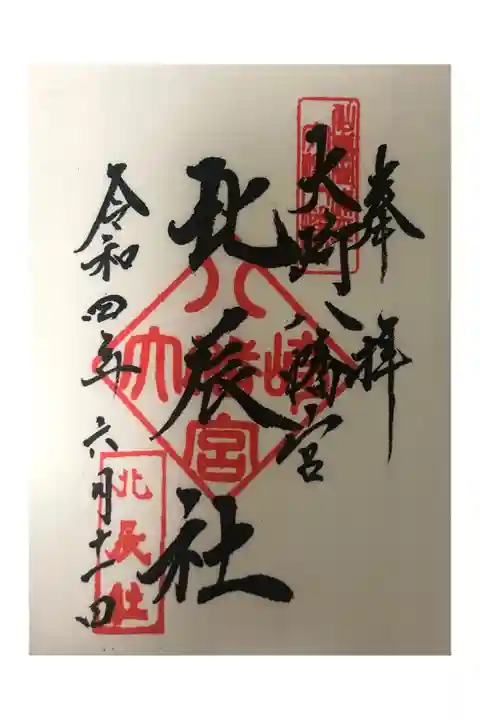 奉拝
大崎八幡宮
北辰社
令和四年六月十一日
北辰社